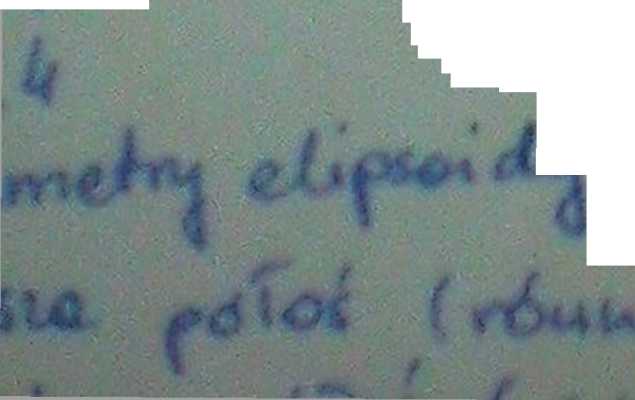 4
metry elipsoidy
sza półoś (równ